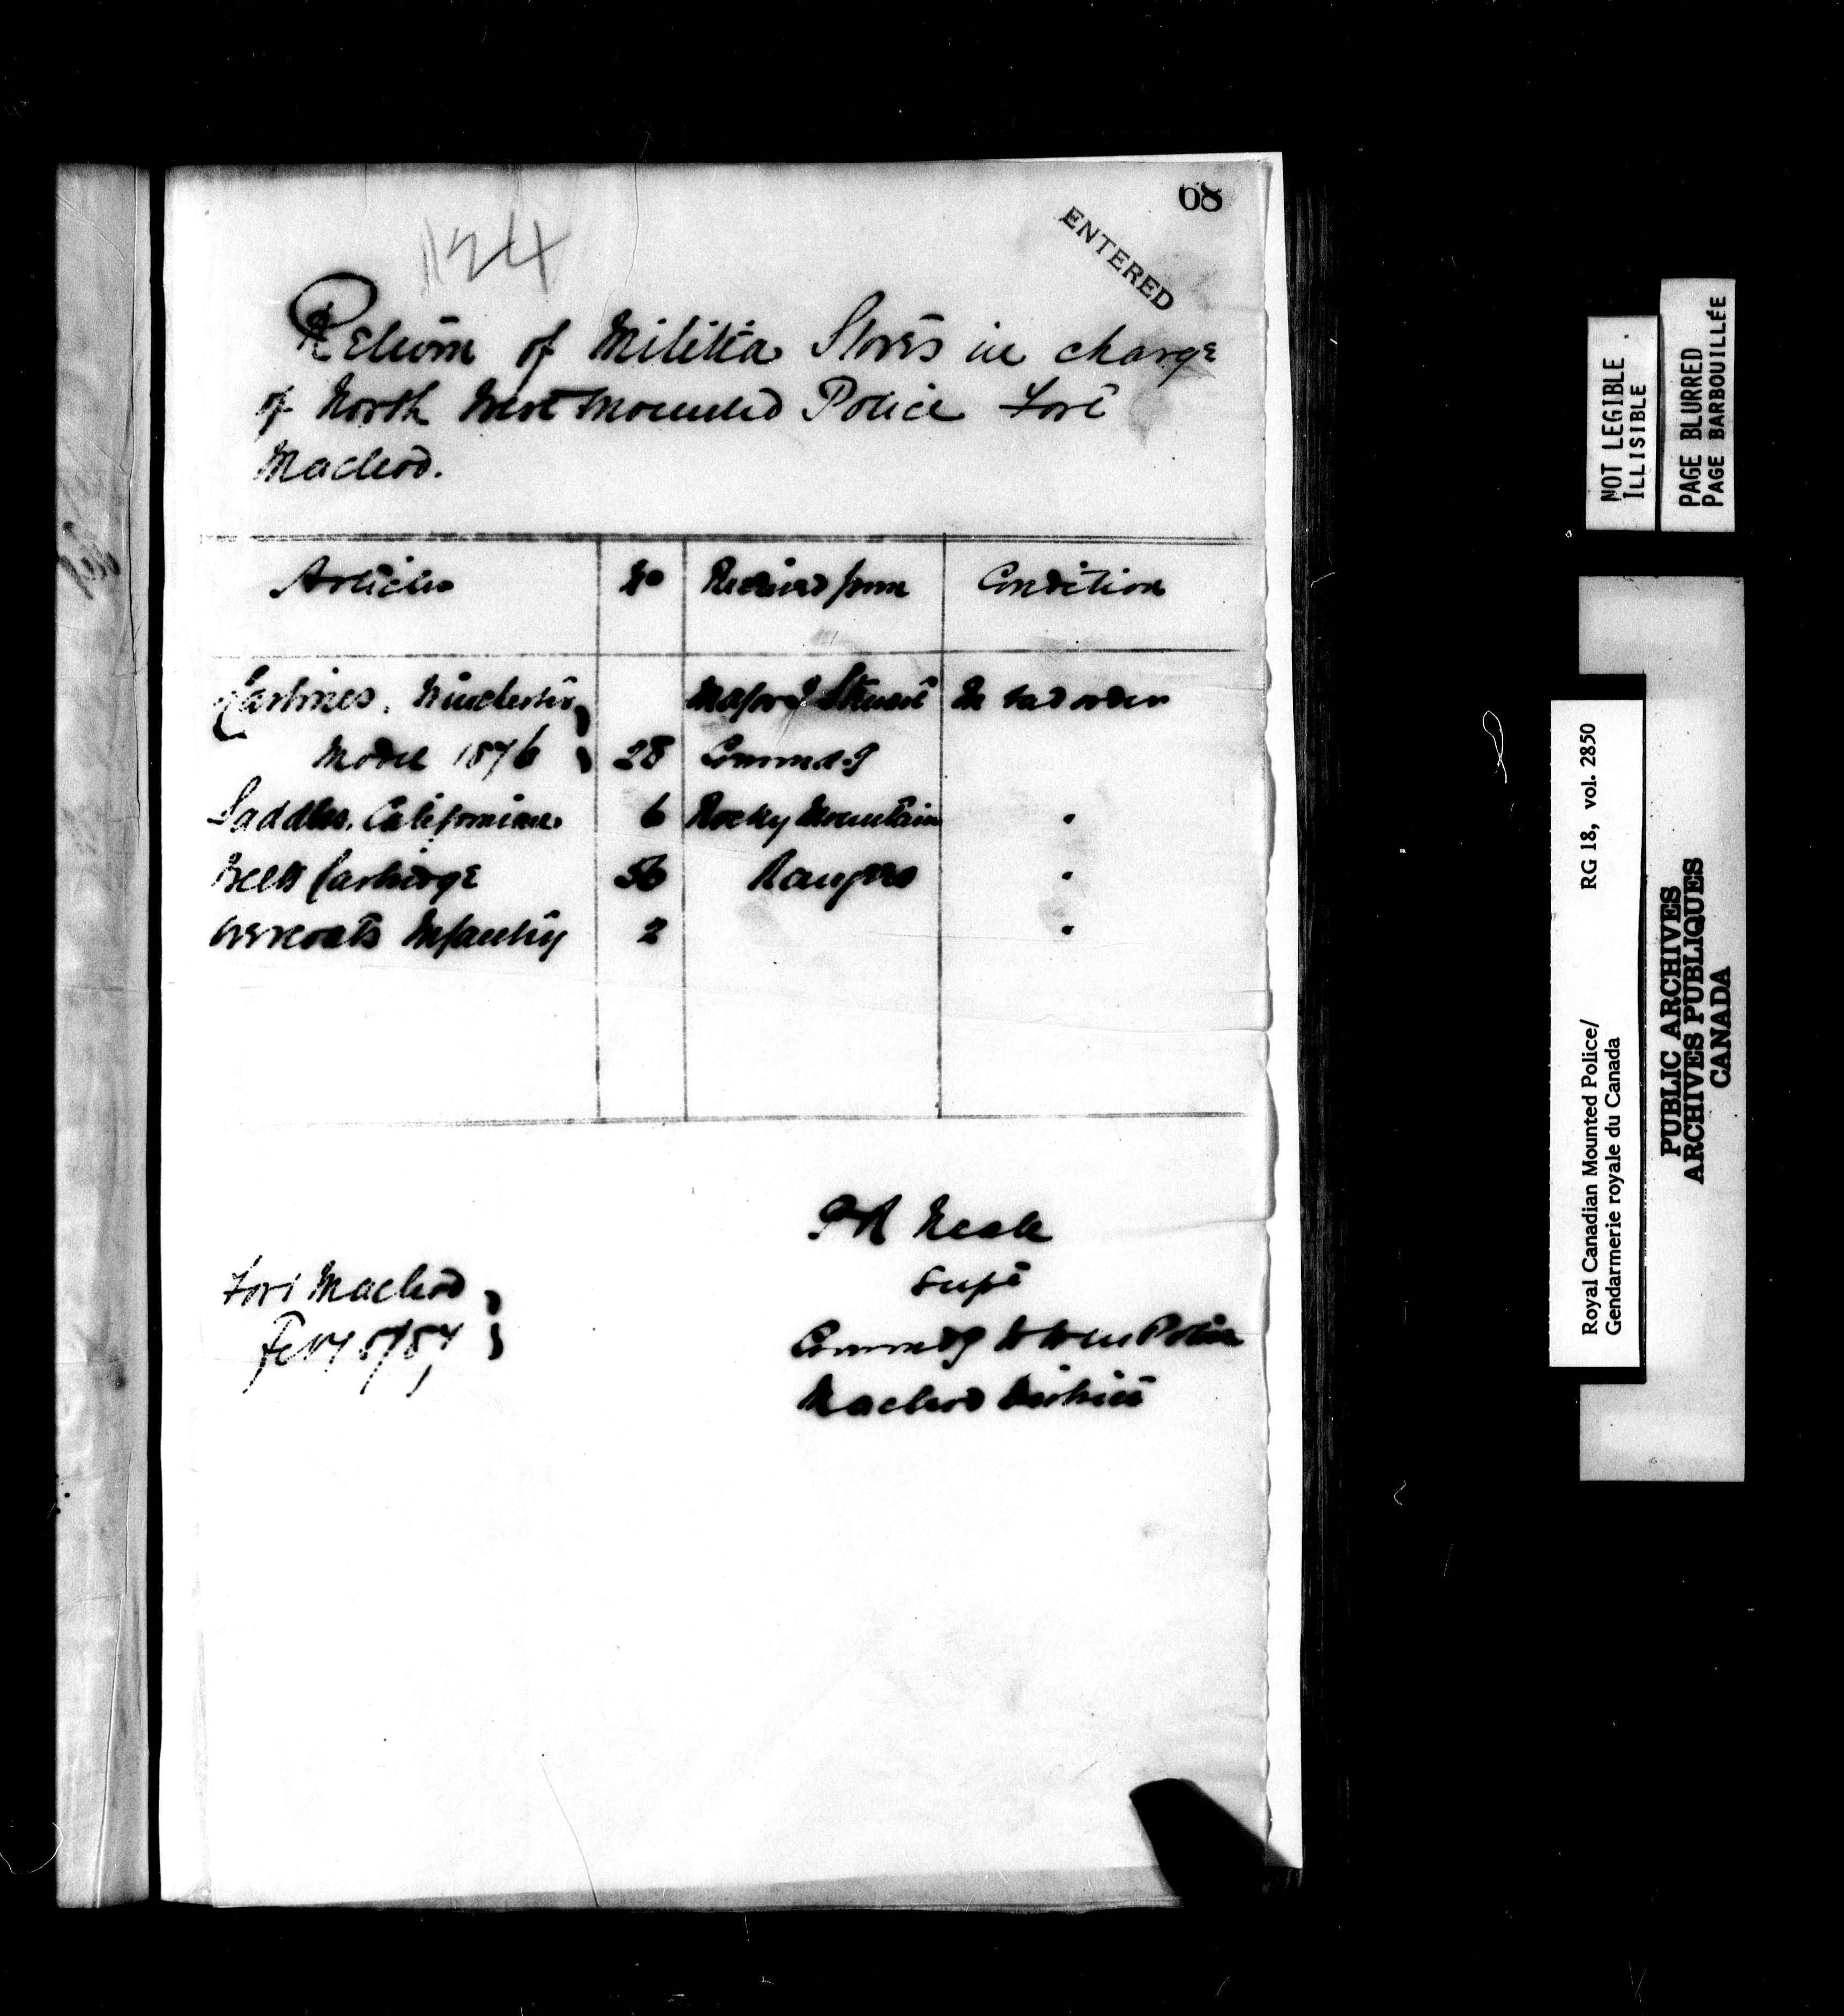 68
ENTERED
124
Return of Militia Stores in charge
of North West Mounted Police Fort
Macleod.
Articles No Received from Condition
Carbines, Winchester Major Stewart In bad order
Model 1876 28 Commdg
Saddles, Californian 6 Rocky Mountain "
Belts Cartridge 56 Rangers "
Overcoats Infantry 2 "
P R Neale
Supt
Fort Macleod
Commdg N W M Police
Feby 8/87
Macleod District
NOT LEGIBLE
ILLISIBLE
PAGE BLURRED
PAGE BARBOUILLÉE
Royal Canadian Mounted Police/ RG 18, vol. 2850
Gendarmerie royale du Canada
PUBLIC ARCHIVES
ARCHIVES PUBLIQUES
CANADA